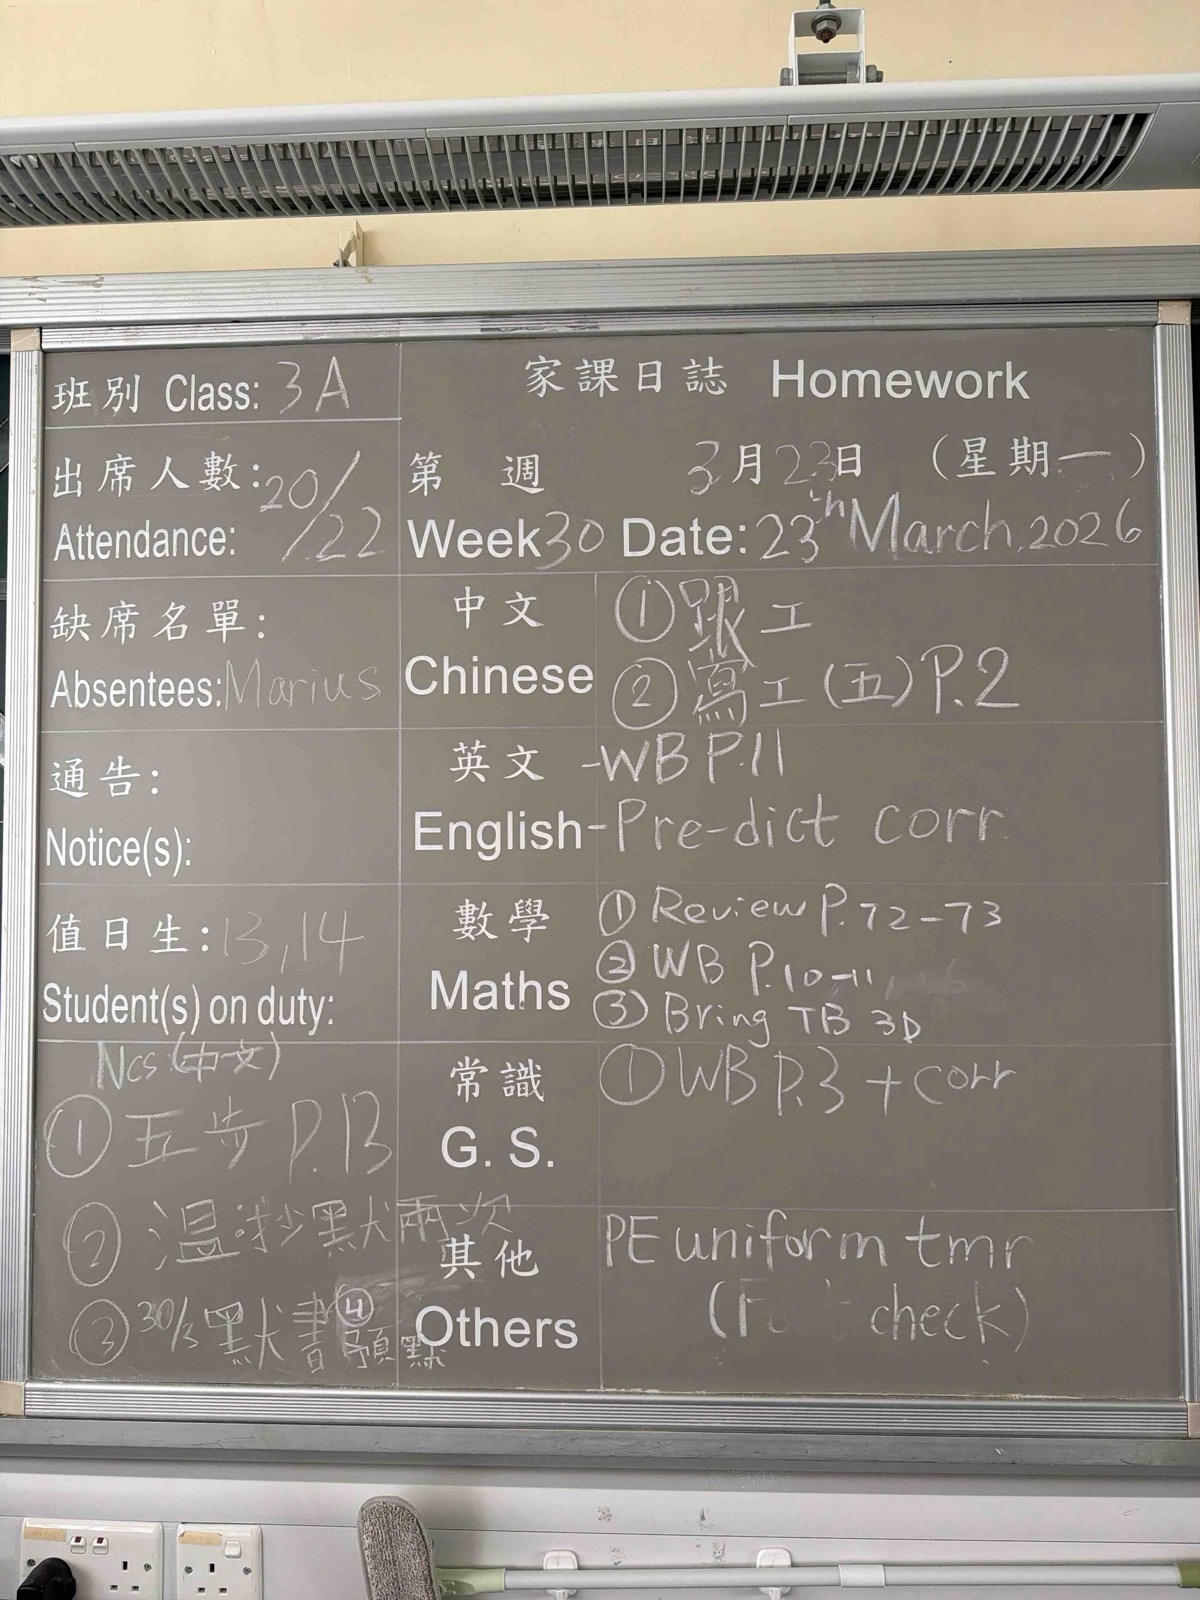 班別 Class: 3A
家課日誌 Homework
出席人數: 20/22
Attendance:
第 週 3月23日 (星期一)
Week 30 Date: 23th March, 2026
缺席名單:
Absentees: Marius
中文 ①跟工
Chinese ②寫工(五)P.2
通告:
Notice(s):
英文 -WB P.11
English -Pre-dict corr.
值日生: 13,14
Student(s) on duty:
數學 ① Review P.72-73
Maths ② WB P.10-11
③ Bring TB 3D
Ncs (中文)
① 五步 P.13
② 温抄默兩次
③ 30/3 默書 ④預默
常識 ① WB P.3 + corr
G. S.
其他 PE uniform tmr
Others ( check)